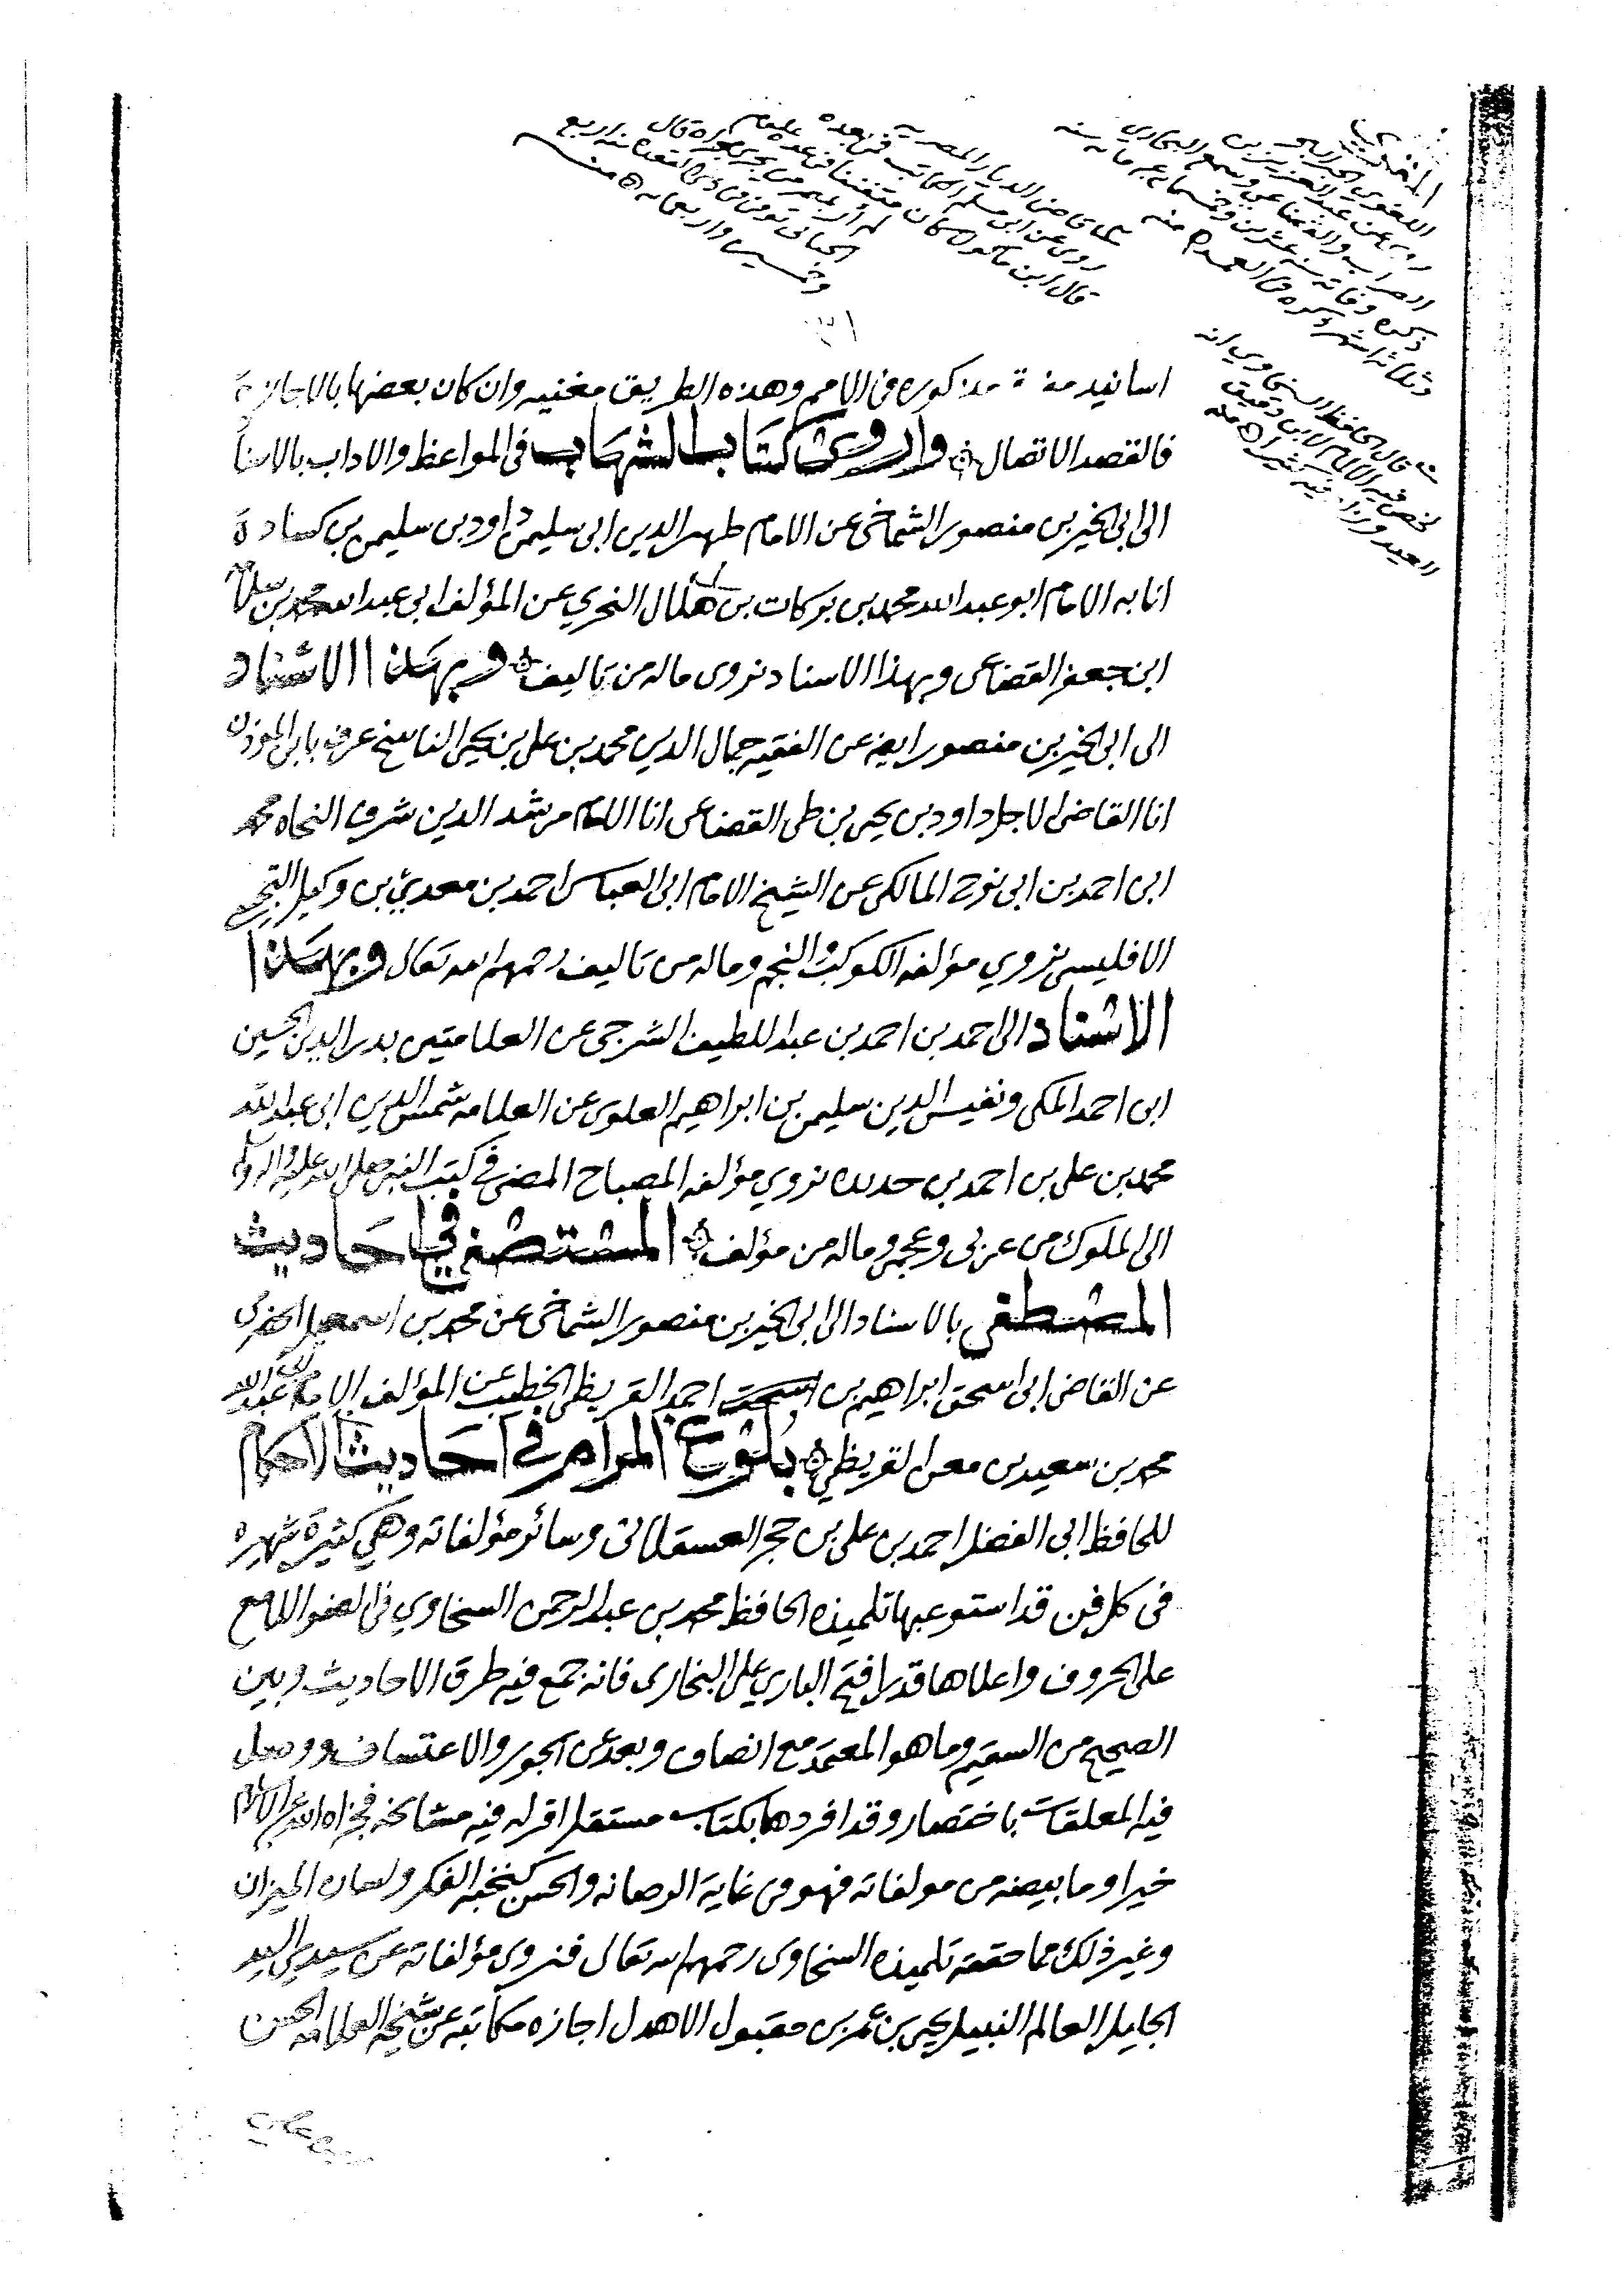 النحوي
اللغوي
روى عن عبد العزيز بن
والقضاعي وسمع البخاري
ذكره وفاته سنة عشرين وخمسمائة عن مائة سنة
وثلاثة اشهر ذكره في منه
قاضي الديار المصرية
روى عن ابي مسلم الكاتب فمن بعده
قال ابن ماكولا كان متفننا في عدة علوم
لم أر بمصر من يجري مجراه قال
الحبال توفي في ذي القعدة سنة اربع
وخمسين واربعمائة منه
قال الحافظ السخاوي انه
لخص فيه الالمام لابن دقيق
العيد وزاد فيه كثيرا منه
اسانيد مذكورة في الامم وهذه الطريق مغنيه وان كان بعضها بالاجازة
فالقصد الاتصال واروي كتاب الشهاب في المواعظ والاداب بالاسناد
الى ابي الخير بن منصور الشماخي عن الامام ظهير الدين ابي سليمن داود بن سليمن بن كسادة
انا به الامام ابو عبد الله محمد بن بركات بن هلال النحوي عن المؤلف ابي عبد الله محمد بن سلامة
ابن جعفر القضاعي وبهذا الاسناد نروي ماله من تاليف وبهذا الاسناد
الى ابي الخير بن منصور ايضا عن الفقيه جمال الدين محمد بن علي بن يحيى الناسخ عرف بابي الموذن
انا القاضي الاجل داود بن يحيى بن طي القضاعي انا الامام مرشد الدين شرف النحاه محمد
ابن احمد بن ابي نوح المالكي عن الشيخ الامام ابي العباس احمد بن معدي بن وكيل التجيبي
الاقليسي نروي مؤلفه الكوكب والنجم وماله من تاليف رحمهم الله تعالى وبهذا
الاسناد الى احمد بن احمد بن عبد اللطيف الشرجي عن العلامتين بدر الدين الحسين
ابن احمد المكي ونفيس الدين سليمن بن ابراهيم العلوي عن العلامه شمس الدين ابي عبد الله
محمد بن علي بن احمد بن حديده نروي مؤلفه المصباح المضي في كتب النبي صلى الله عليه واله وسلم
الى الملوك من عربي وعجمي وماله من مؤلف المستصفى في احاديث
المصطفى بالاسناد الى ابي الخير بن منصور الشماخي عن محمد بن اسمعيل الحضرمي
عن القاضي ابي اسحق ابراهيم بن احمد القريظي الخطيب عن المؤلف الامام ابي عبد الله
محمد بن سعيد بن معن القريظي بلوغ المرام في احاديث الاحكام
للحافظ ابي الفضل احمد بن علي بن حجر العسقلاني وسائر مؤلفاته وهي كثيرة شهيره
في كل فن قد استوعبها تلميذه الحافظ محمد بن عبد الرحمن السخاوي في الضو اللامع
على الحروف واعلاها قدرا فتح الباري على البخاري فانه جمع فيه طرق الاحاديث وبين
الصحيح من السقيم وما هو المعتمد مع انصاف وبعد عن الجور والاعتساف ووصل
فيه المعلقات باختصار وقد افردها بكتاب مستقل اقر له فيه مشائخه فجزاه الله عن الاسلام
خيرا وما بيضه من مولفاته فهو في غاية الرصانه والحسن كنخبة الفكر ولسان الميزان
وغير ذلك مما حققه تلميذه السخاوي رحمهم الله تعالى فنروي مؤلفاته عن سيدي السيد
الجليل العالم النبيل يحيى بن عمر بن مقبول الاهدل اجازه مكاتبة عن شيخه العلامه الحسن